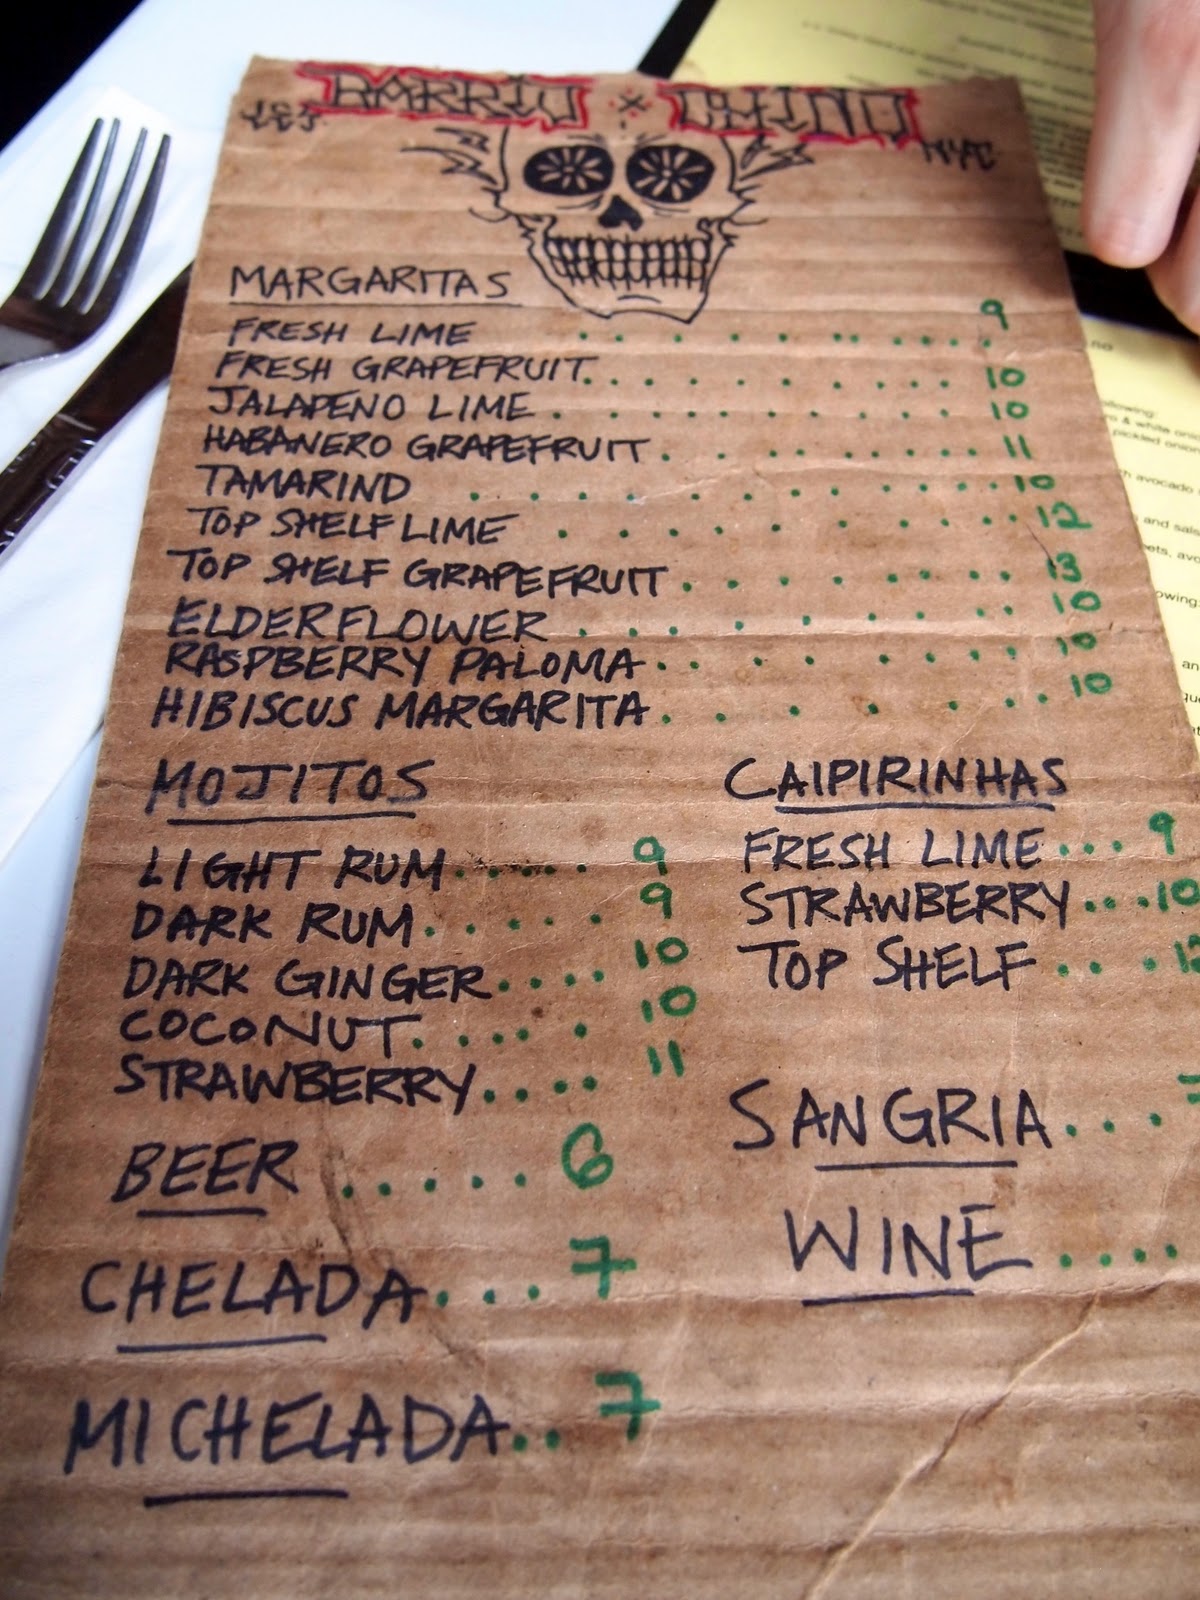 L.E.S. BARRIO × CHINO NYC
MARGARITAS
FRESH LIME . . . . . . . . . . 9
FRESH GRAPEFRUIT. . . . . . . . . . 10
JALAPENO LIME . . . . . . . . . . 10
HABANERO GRAPEFRUIT. . . . . . . . . 11
TAMARIND . . . . . . . . . . . 10
TOP SHELF LIME . . . . . . . . . . 12
TOP SHELF GRAPEFRUIT. . . . . . . . . 13
ELDERFLOWER . . . . . . . . . . 10
RASPBERRY PALOMA. . . . . . . . . 10
HIBISCUS MARGARITA. . . . . . . . 10
MOJITOS
LIGHT RUM. . . . . 9
DARK RUM. . . . . 9
DARK GINGER. . . . 10
COCONUT. . . . . 10
STRAWBERRY. . . . 11
BEER . . . . . 6
CHELADA. . . . 7
MICHELADA. . 7
CAIPIRINHAS
FRESH LIME. . . 9
STRAWBERRY. . . 10
TOP SHELF . . .
SANGRIA. . . .
WINE . . . .
llowing:
& white
pickled onion
avocado
and